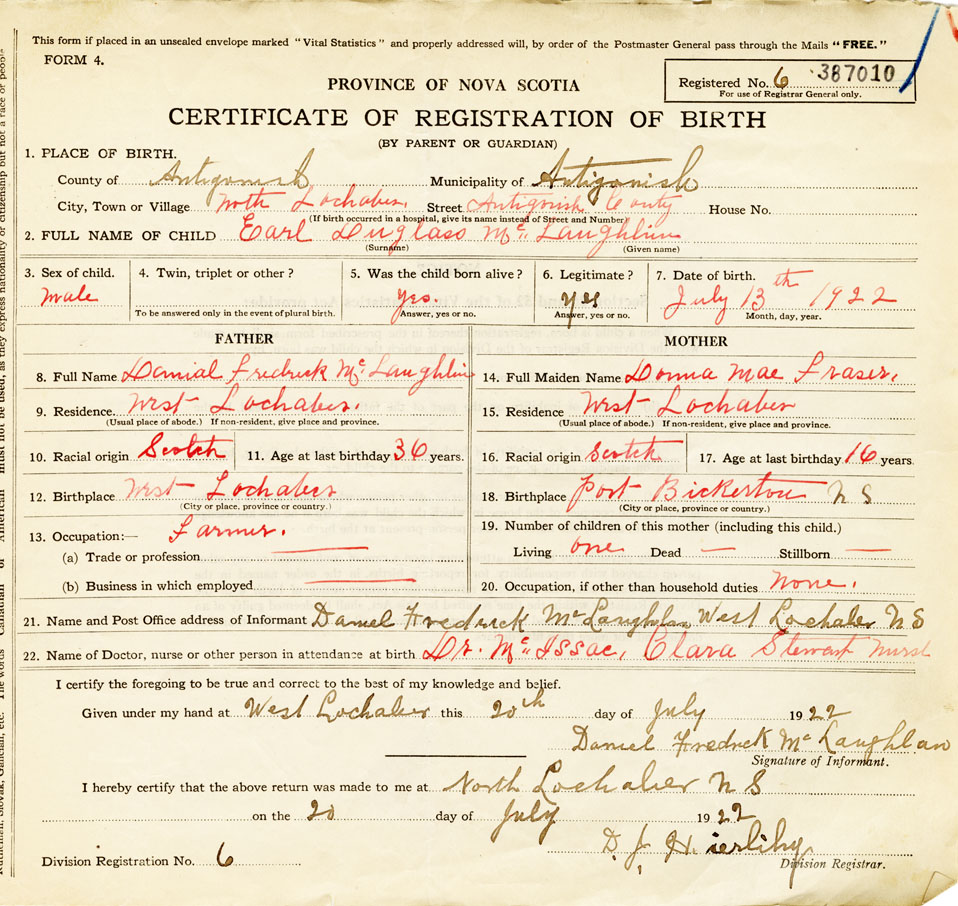 This form if placed in an unsealed envelope marked "Vital Statistics" and properly addressed will, by order of the Postmaster General pass through the Mails "FREE."
FORM 4.
Registered No. 6 387010
For use of Registrar General only.
PROVINCE OF NOVA SCOTIA
CERTIFICATE OF REGISTRATION OF BIRTH
(BY PARENT OR GUARDIAN)
1. PLACE OF BIRTH.
County of Antigonish Municipality of Antigonish
City, Town or Village North Lochaber. Street Antigonish County House No.
(If birth occurred in a hospital, give its name instead of Street and Number)
2. FULL NAME OF CHILD Earl Duglass Mc Laughlin
(Surname) (Given name)
3. Sex of child. 4. Twin, triplet or other? 5. Was the child born alive? 6. Legitimate? 7. Date of birth.
male yes. yes July 13th 1922
To be answered only in the event of plural birth. Answer, yes or no. Answer, yes or no. Month, day, year.
FATHER
8. Full Name Danial Fredrick Mc Laughlin
9. Residence. West Lochaber.
(Usual place of abode.) If non-resident, give place and province.
10. Racial origin Scotch 11. Age at last birthday 36 years.
12. Birthplace West Lochaber
(City or place, province or country.)
13. Occupation:— Farmer.
(a) Trade or profession —
(b) Business in which employed —
MOTHER
14. Full Maiden Name Donna Mae Fraser.
15. Residence West Lochaber
(Usual place of abode.) If non-resident, give place and province.
16. Racial origin Scotch 17. Age at last birthday 16 years.
18. Birthplace Port Bickerton N S
(City or place, province or country.)
19. Number of children of this mother (including this child.)
Living one Dead — Stillborn —
20. Occupation, if other than household duties None.
21. Name and Post Office address of Informant Daniel Fredrick Mc Laughlan West Lochaber N S
22. Name of Doctor, nurse or other person in attendance at birth Dr. Mc Issac, Clara Stewart nurse
I certify the foregoing to be true and correct to the best of my knowledge and belief.
Given under my hand at West Lochaber this 20th day of July 1922
Daniel Fredrick Mc Laughlan
Signature of Informant.
I hereby certify that the above return was made to me at North Lochaber N S
on the 20 day of July 1922
D. J. Hierlihy
Division Registrar.
Division Registration No. 6